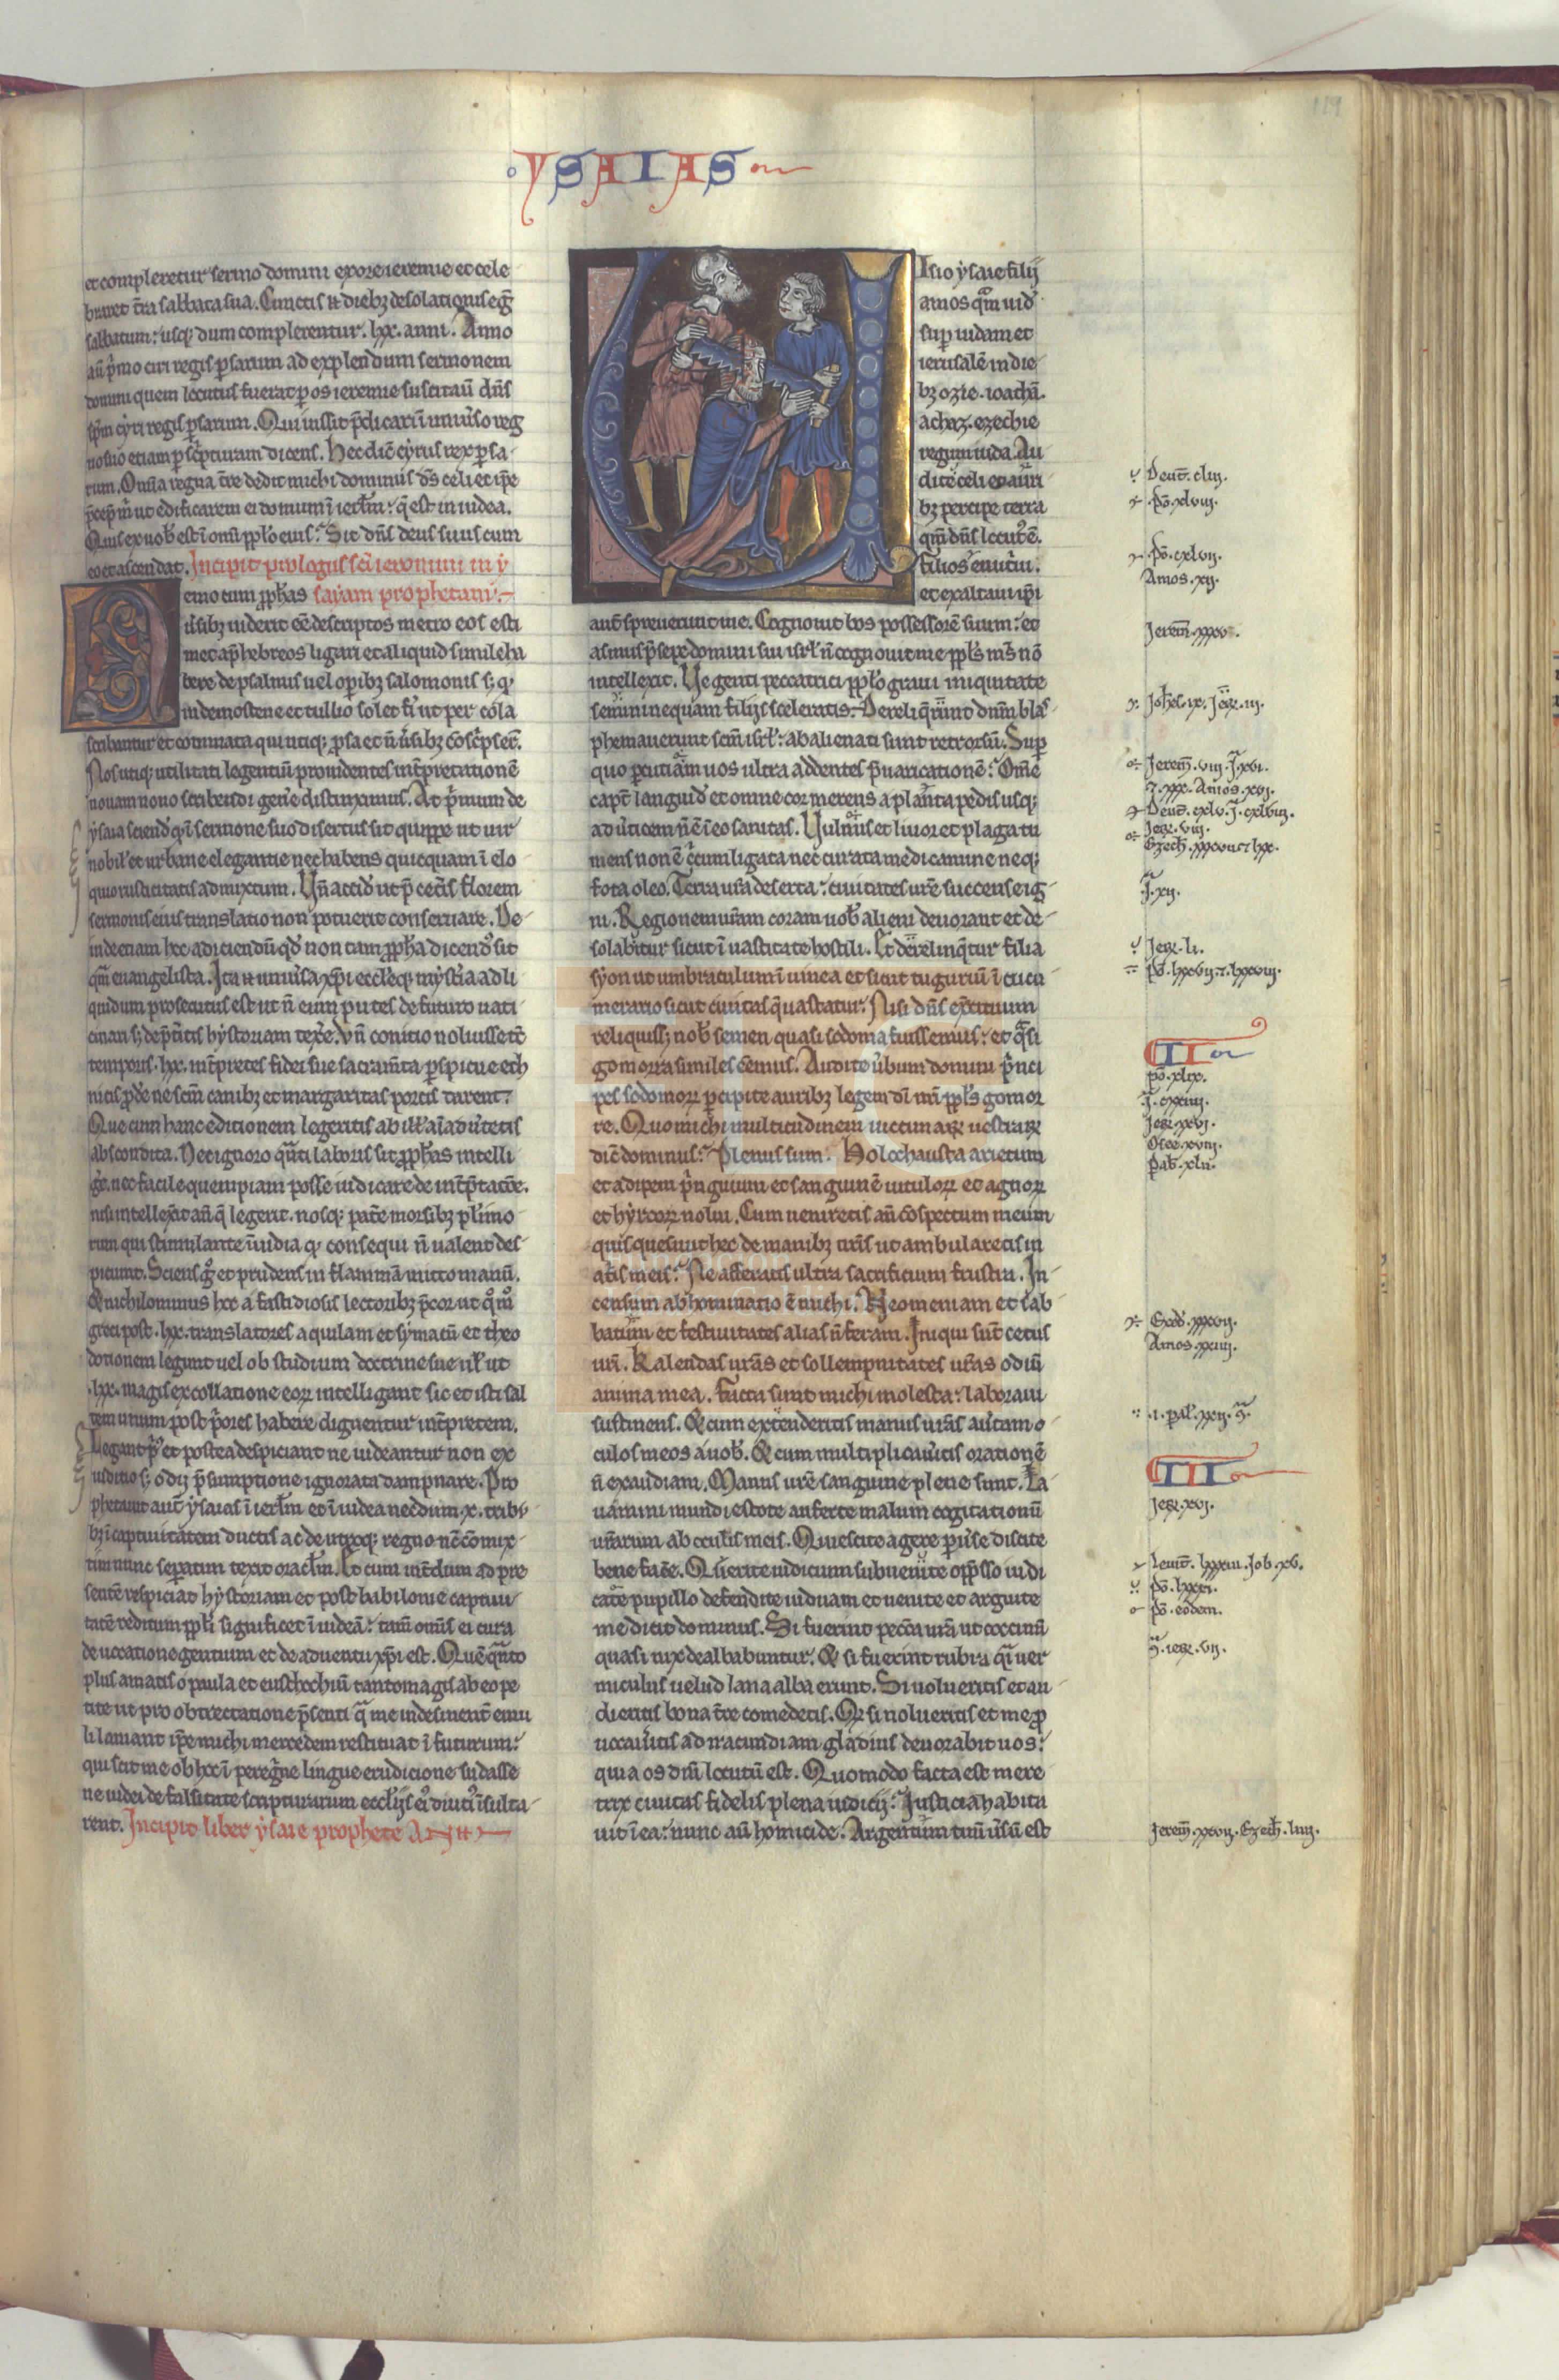 YSAIAS
119
et compleretur sermo domini ex ore ieremie et cele
braret t̄ra sabbata sua. Cunctis .n. dieb; desolationis eḡ
sabbatum: usq; dum complerentur .lxx. anni. Anno
aū p̄mo ciri regis p̄sarum ad explendum sermonem
domini quem locutus fuerat p os ieremie suscitauit dn̄s
sp̄m cyri regis p̄sarum. Qui iussit p̄dicari ī uniu̾so reg
no suo etiam p sc̄pturam dicens. Hec dic̄ cyrus rex p̄sa
rum. Om̄ia regna t̄re dedit michi dominus dn̄s celi et ip̄e
p̄cep̄ m̄ ut edificarem ei domum ī ierl̄m: q̄ est in iudea.
Quis ex uob̄ est ī omī ppl̄o eius? Sit dn̄s deus suus cum
eo et ascendat. Incipit prologus sc̄i ieronimi in y
sayam prophetam.
Nemo cum pph̄as
u̾sib; uiderit eē descriptos metro eos esti
met ap̄ hebreos ligari et aliquid simile ha
bere de psalmis uel opib; salomonis s; q̾
in demostene et tullio solet fi̾ ut per cola
scribantur et commata qui utiq; p̄sa et n̄ u̾sib; cōsc̄pser̄.
Nos utiq; utilitati legentiū prouidentes int̾pretationē
nouam nouo scribendi gene̾ distinximus. Ac p̾mum de
ysaia sciend̾ q̾ ī sermone suo disertus sit quippe ut uir
nobil' et urbane elegantie nec habens quicquam ī elo
quio rusticitatis admixtum. Vn̄ accid̾ ut p̄ cet̾is florem
sermonis eius translatio non potuerit conseruare. De
inde etiam hec adiciendū qd̾ non tam pph̄a dicend̾ sit
qm̄ euangelista. Ita .n. uniu̾sa xp̄i eccl'eq; myst̾ia ad li
quidum prosecutus est ut n̄ eum putes de futuro uati
cinari s; de p̾t̾itis hystoriam texe̾. Vn̄ conicio noluisse tc̄
temporis .lxx. int̾pretes fidei sue sacram̄ta p̄spicue eth
nicis p̄de̾ ne sc̄m canib; et margaritas porcis darent?
Que cum hanc editionem legeritis ab ill' aīad u̾tetis
abscondita. Nec ignoro q̄nti laboris sit pph̄as intelli
ge̾. nec facile quempiam posse iudicare de int̾p̄tacōe.
nisi intellex̾it an̄ q̄ legerit. nosq; pate̾ morsib; pl'imo
rum qui stimulante īuidia q̾ consequi n̄ ualent des
piciunt. Sciens g̾ et prudens in flammā mitto manū.
Et nichilominus hec a fastidiosis lectorib; p̄cor ut q̾m̾
greci post .lxx. translatores aquilam et symacū et theo
dotionem legunt uel ob studium doctrine sue ul' ut
.lxx. magis ex collatione eor̄ intelligant sic et isti sal
tem unum post p̾ores habere dignentur int̾pretem.
Legant p̾' et postea despiciant ne uideantur non ex
iuditio s; odij p̄sumptione ignorata dampnare. Pro
phetauit aut̄ ysaias ī ierl̄m et ī iudea necdum .x. trib;
b; ī captiuitatem ductis ac de ut̾oq; regno nc̄ cōmix
tim nunc separatim texit oracl̄m. Et cum int̾dum ad pre
sentē respiciat hystoriam et post babilonie captiui
tatē reditum ppl'i significet ī iudeā: tam̄ om̄is ei cura
de uocatione gentium et de aduentu xp̄i est. Quē q̄nto
plus amatis o paula et eustochiū tanto magis ab eo pe
tite ut pro obtrectatione p̄senti q̄ me indesinent̄ emu
li laniant ip̄e michi mercedem restituat ī futurum:
qui scit me ob hoc ī pereg̾ne lingue erudicione sudasse
ne iudei de falsitate scripturarum eccl'ijs ei̾ diuti̾ īsulta
rent. Incipit liber ysaie prophete
Visio ysaie filij
amos qm̄ uid̾
sup iudam et
ierusalē in die
b; ozie. ioathā.
achaz. ezechie
regum iuda. Au
dite celi et aurı
b; percipe terra
qm̄ dn̄s locut̾ ē.
filios enut̾iui.
et exaltaui ip̄i
aut̄ spreuerunt me. Cognouit bos possessorē suum: et
asinus p̄sepe domini sui isrl' n̄ cognouit me ppl's m̾s nō
intellexit. Ve genti peccatrici ppl'o graui iniquitate
semini nequam filijs sceleratis. Dereliq̾unt dn̄m blas
phemauerunt sc̄m isrl': abalienati sunt retrorsū. Sup
quo p̄cutiam uos ultra addentes p̄uaricationē? Om̄e
capt̄ languid̾ et omne cor merens a planta pedis usq;
ad u̾ticem n̄ ē ī eo sanitas. Vulnus et liuor et plaga tu
mens non ē c̾cumligata nec curata medicamine neq;
fota oleo. Terra ur̄a deserta: ciuitates ur̄e succense ig
ni. Regionem ur̄am coram uob̄ alieni deuorant et de
solabitur sicut ī uastitate hostili. Et derelinq̾tur filia
syon ut umbraculum ī uinea et sicut tuguriū ī cucu
merario sicut ciuitas q̄ uastatur. Nisi dn̄s exercituum
reliquiss; nob̄ semen quasi sodoma fuissemus: et q̄si
gomorra similes e̾emus. Audite u̾bum domini p̾nci
pes sodomor̄ p̄cipite aurib; legem dī nr̄i ppl's gomor
re. Quo michi multitudinem uictimar̄ uestrar̄
dic̄ dominus? Plenus sum. Holochausta arietum
et adipem p̾nguium et sanguinē uitulor̄ et agnor̄
et hyrcor̄ nolui. Cum ueniretis an̄ cōspectum meum
quis quesiuit hec de manib; ur̄is ut ambularetis in
at̾is meis? Ne afferatis ultra sacrificium frustra. In
censum abhominatio ē michi. Neomeniam et sab
batum et festiuitates alias n̄ feram. Iniqui sūt cetus
ur̄i. Kalendas ur̄as et sollempnitates ur̄as odiū
anima mea. Facta sunt michi molesta: laboraui
sustinens. Et cum extenderitis manus ur̄as au̾tam o
culos meos a uob̄. Et cum multiplicau̾itis orationē
n̄ exaudiam. Manus ur̄e sanguine plene sunt. La
uamini mundi estote auferte malum cogitationū
ur̄arum ab oculis meis. Quiescite agere peru̾se discite
bene face̾. Querite iudicium subuenite opp̄sso iudi
cate pupillo defendite uiduam et uenite et arguite
me dicit dominus. Si fuerint pecc̄a ur̄a ut coccinū
quasi nix dealbabuntur. Et si fuerint rubra q̄i uer
miculus uelud lana alba erunt. Si uolueritis et au
dieritis bona t̄re comedetis. Qd̾ si nolueritis et me p̄
uocau̾itis ad iracundiam gladius deuorabit uos:
quia os dn̄i locutū est. Quomodo facta est mere
trix ciuitas fidelis plena iudicij? Iusticia habita
uit ī ea: nunc aū homicide. Argentum tuū u̾sū est
Deut̄. clii.
Amos. xij.
II
III
p̄s. eodem.